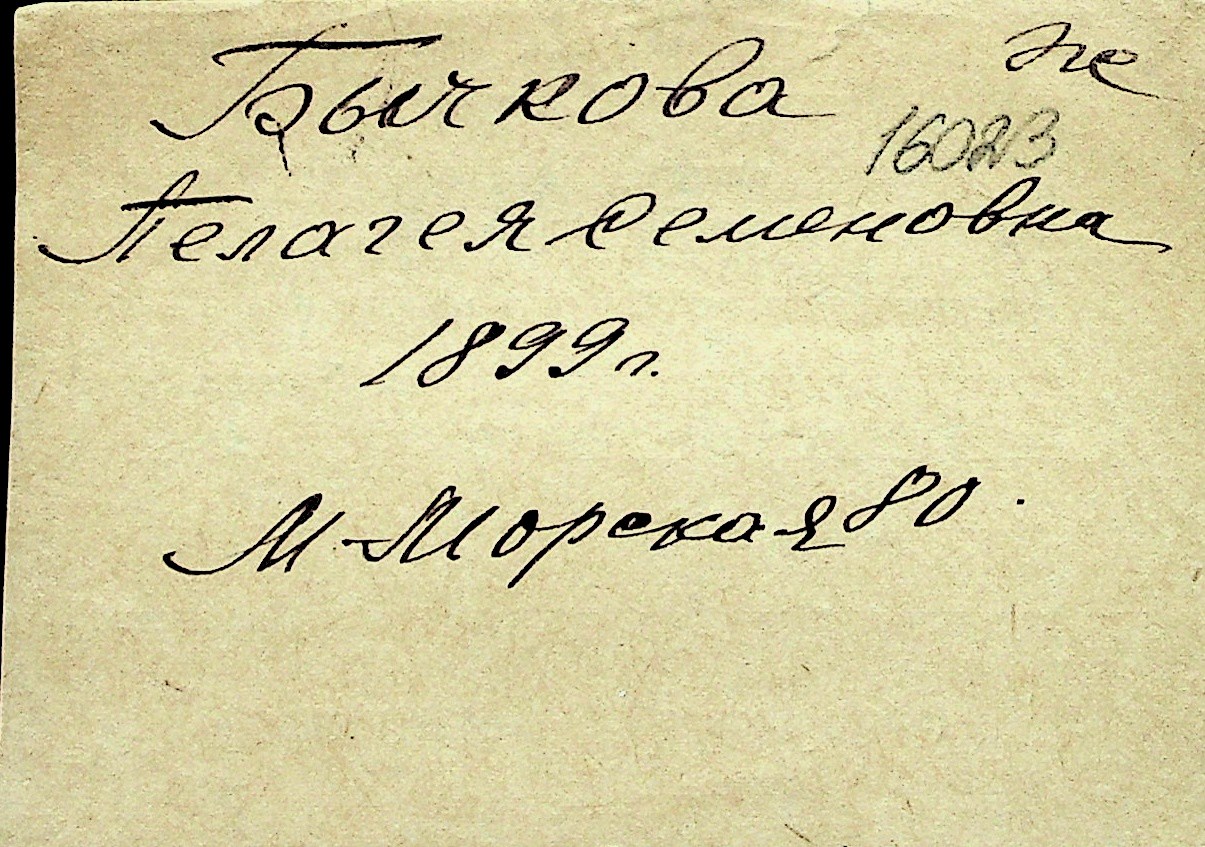 Бычкова
16023
Пелагея Семеновна
1899 г.
М-Морская 80.